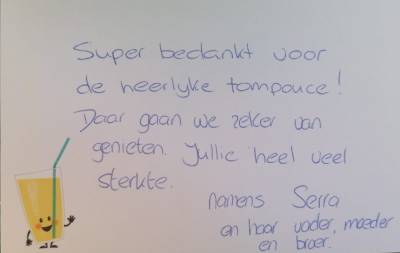 Super bedankt voor
de heerlyke tompouce!
Daar gaan we zeker van
genieten. Jullie heel veel
sterkte.
namens Serra
en haar vader, moeder
en broer.